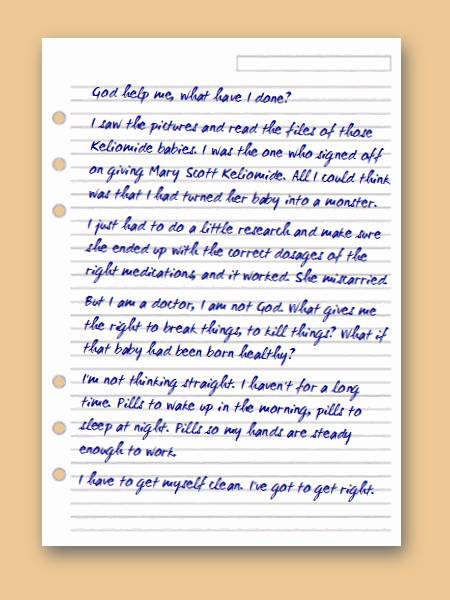 God help me, what have I done?
I saw the pictures and read the files of those
Keliomide babies. I was the one who signed off
on giving Mary Scott Keliomide. All I could think
was that I had turned her baby into a monster.
I just had to do a little research and make sure
she ended up with the correct dosages of the
right medications, and it worked. She miscarried.
But I am a doctor, I am not God. What gives me
the right to break things, to kill things? What if
that baby had been born healthy?
I'm not thinking straight. I haven't for a long
time. Pills to wake up in the morning, pills to
sleep at night. Pills so my hands are steady
enough to work.
I have to get myself clean. I've got to get right.